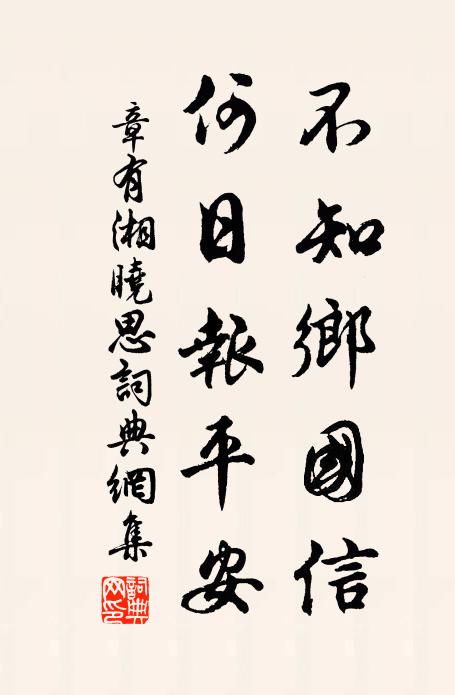 不知鄉國信
何日報平安
章有湘曉思詞典網集
詞典网印